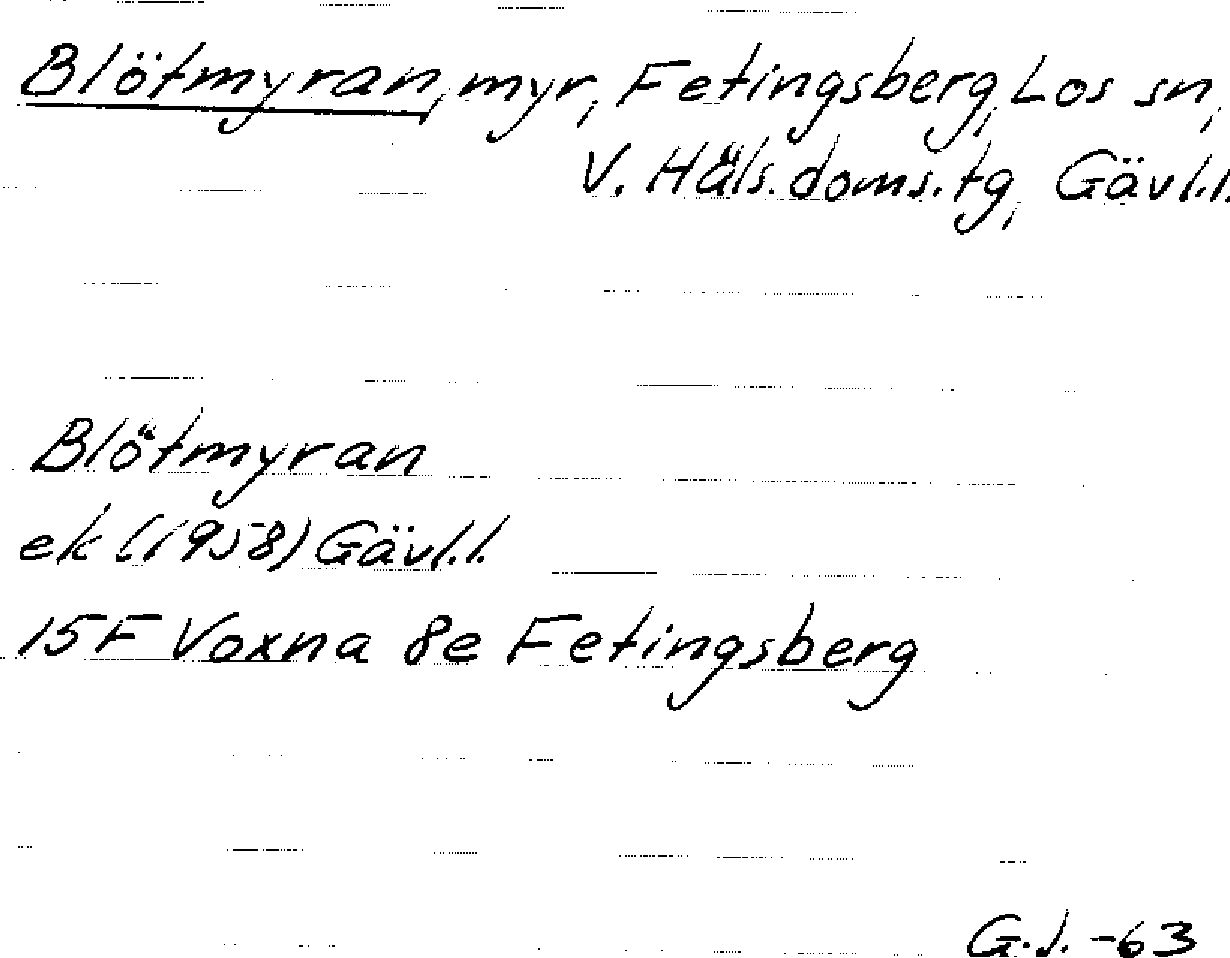 Blötmyran, myr, Fetingsberg, Los sn,
V. Häls. doms. tg, Gävl.l.
Blötmyran
ek (1958) Gävl.l.
15F Voxna 8e Fetingsberg
G.J. -63